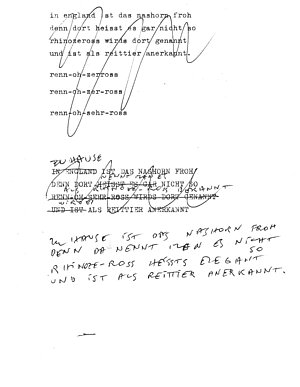 in england ist das nashorn froh
denn dort heisst es gar nicht so
rhinozeross wirds dort genannt
und ist als reittier anerkannt.
renn-oh-zerross
renn-oh-zer-ross
renn-oh-sehr-ross
ZU HAUSE
IN ENGLAND IST DAS NASHORN FROH
NENNT
DENN DORT HEISST ES GAR NICHT SO
ALS
RENN-OH-SEHR-ROSS WIRDS DORT GENANNT
UND IST ALS REITTIER ANERKANNT
ZU HAUSE IST DAS NASHORN FROH
DENN DA NENNT ES NICHT
SO
RHINZE-ROSS HEISSTS ELEGANT
UND IST ALS REITTIER ANERKANNT.